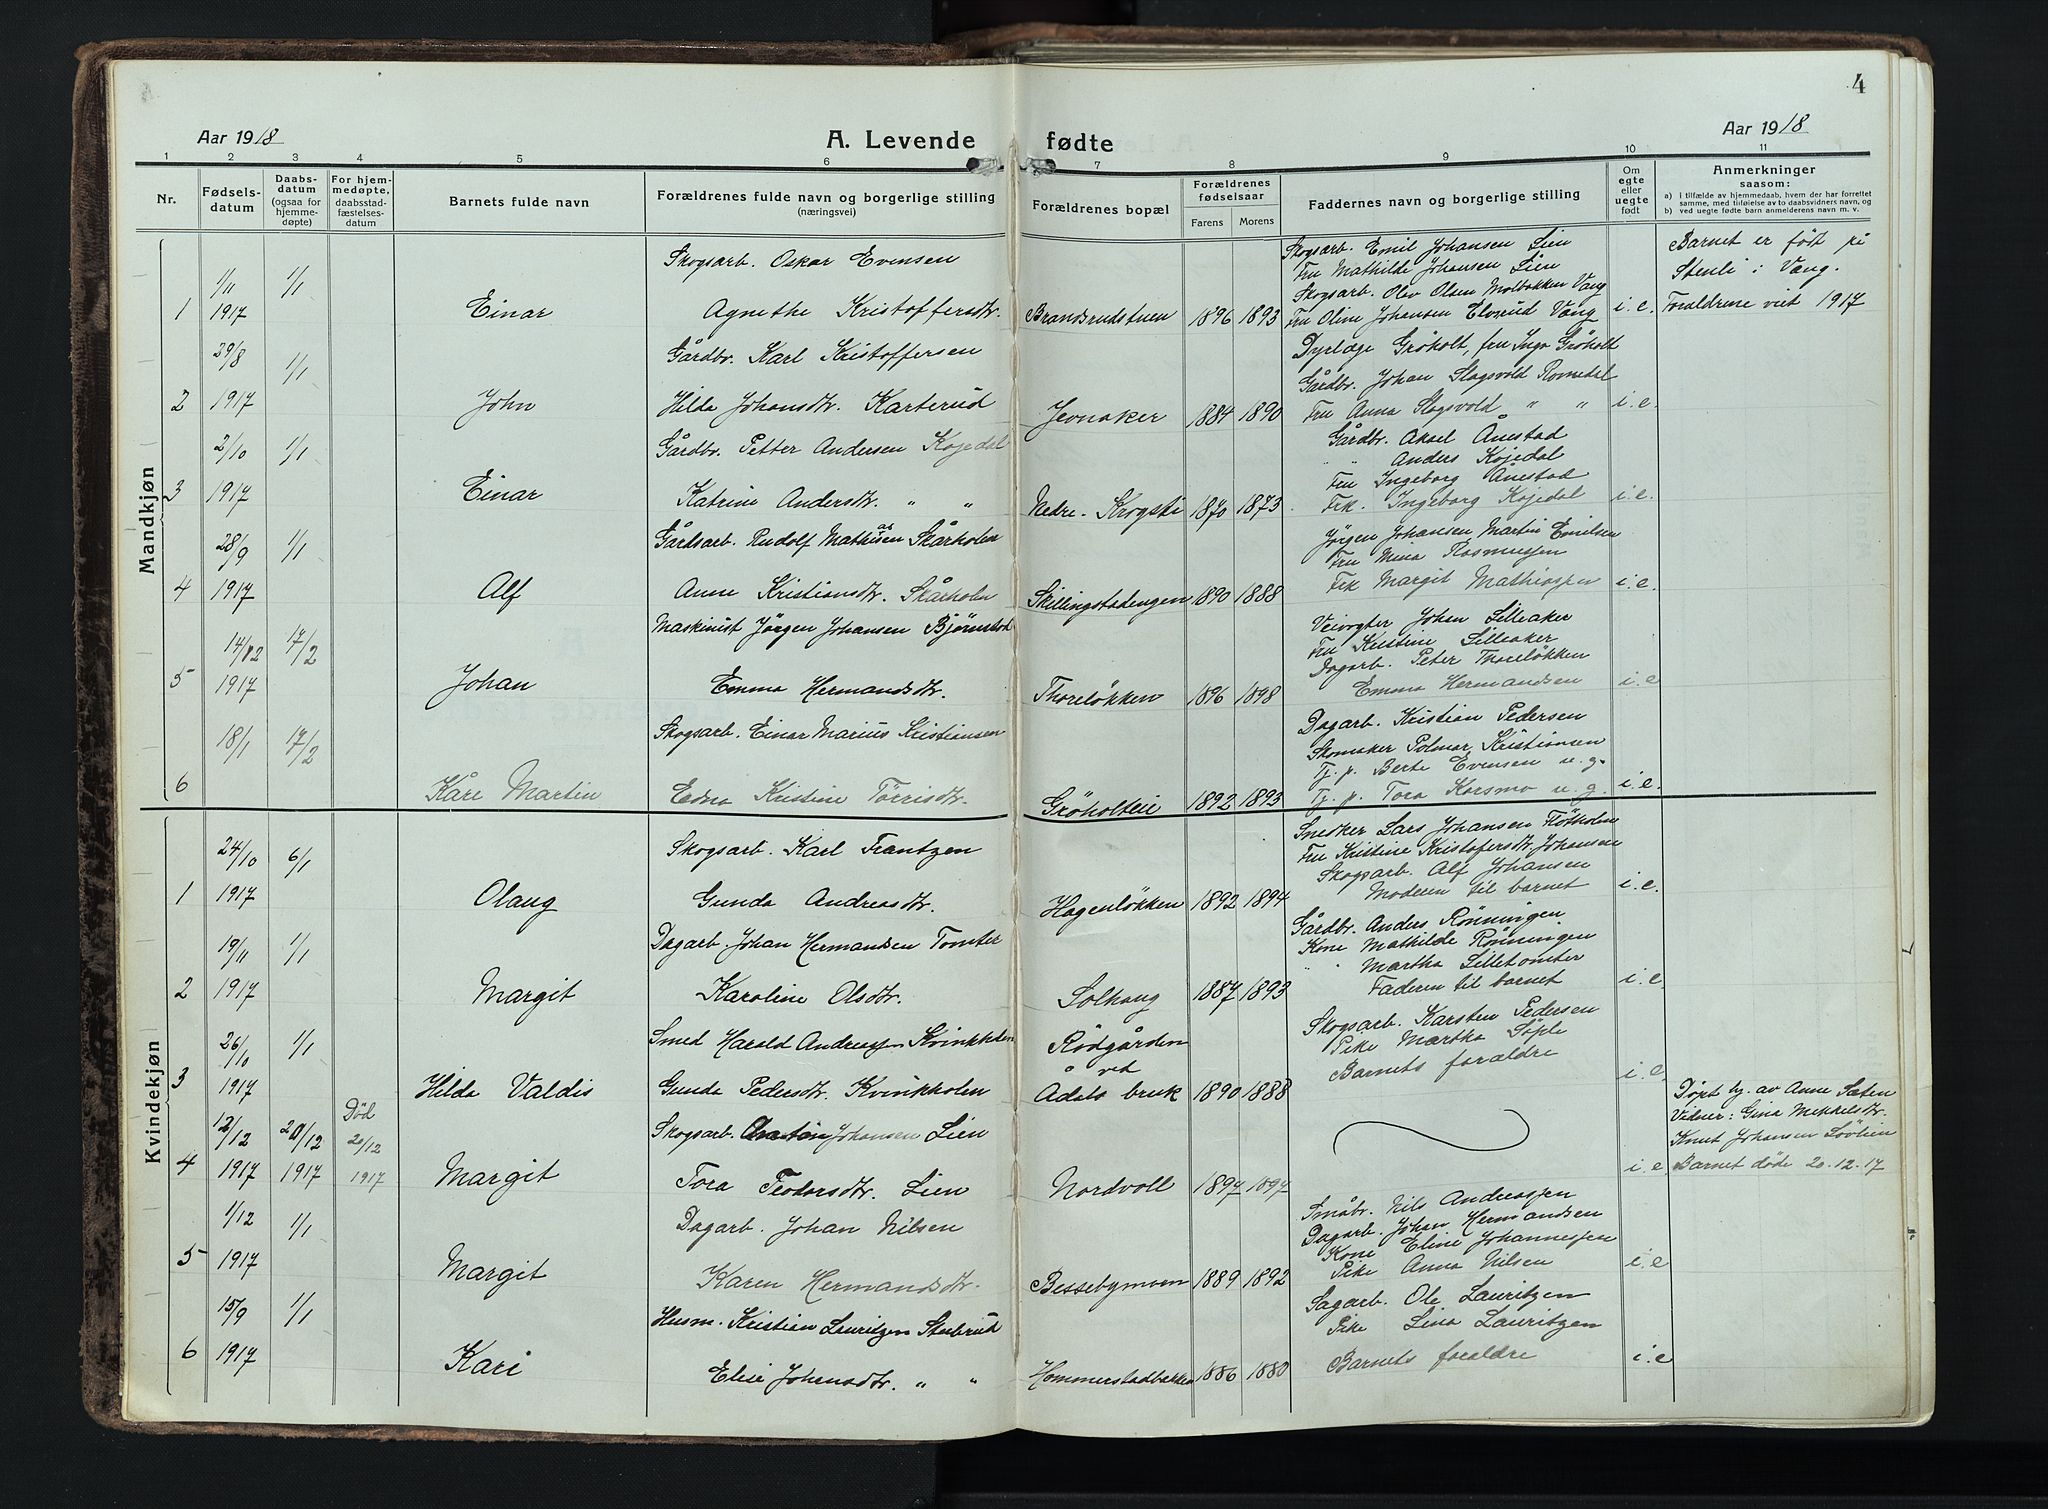 4
Aar 1918
A. Levende fødte
Aar 1918
1 2 3 4 5 6 7 8 9 10 11
Nr.
Fødsels-
datum
Daabs-
datum
(ogsaa for
hjemme-
døpte)
For hjem-
medøpte,
daabsstad-
fæstelses-
datum
Barnets fulde navn
Forældrenes fulde navn og borgerlige stilling
(næringsvei)
Forældrenes bopæl
Forældrenes
fødselsaar
Farens Morens
Faddernes navn og borgerlige stilling
Om
egte
eller
uegte
født
Anmerkninger
saasom:
a) I tilfælde av hjemmedaab, hvem der har forrettet
samme, med tilføielse av to daabsvidners navn, og
b) ved uegte fødte barn anmelderens navn m. v.
Mandkjøn
1
1/11
1917
1/1
Einar
Skogsarb. Oskar Evensen
Agnethe Kristoffersdtr.
Brandsrudstuen
1896 1893
Skogsarb. Emil Johansen Lien
Fru Mathilde Johansen Lien
Skogsarb. Olav Olsen Molbakken Vang
Fru Oline Johansen Elvsrud Vang
i. e.
Barnet er født på
Stenli i Vang.
Foraldrene viet 1917
2
29/8
1917
1/1
John
Gårdbr. Karl Kristoffersen
Hilda Johansdtr. Karterud
Jevnaker
1884 1890
Dyrlæge Grøholt, fru Inga Grøholt
Gårdbr. Johan Slagsvold Romedal
Fru Anna Slagsvold " "
i. e.
3
2/10
1917
1/1
Einar
Gårdbr. Petter Andersen Kojedal
Katrine Andersdtr. " "
Nedre-Krogsti
1870 1873
Gårdbr. Aksel Ånestad
" Anders Kojedal
Fru Ingeborg Ånestad
Frk. Ingeborg Kojedal
i. e.
4
28/9
1917
1/1
Alf
Gårdsarb. Rudolf Mathisen Skårholen
Anne Kristiansdtr. Skårholen
Skillingstadengen
1890 1888
Jørgen Johansen, Martin Emilsen
Fru Mina Rasmussen
Frk Margit Mathiassen
i. e.
5
14/12
1917
17/2
Johan
Maskinist Jørgen Johansen Bjørnstad
Emma Hermandsdtr.
Thoreløkken
1896 1898
Veivogter Johan Lilleaker
Fru Kristine Lilleaker
Dagarb. Peter Thoreløkken
Emma Hermandsen
i. e
6
18/1
17/2
Kåre Martin
Skogsarb. Einar Marius Kristiansen
Edna Kristine Tørrisdtr.
Grøholteie
1892 1893
Dagarb. Kristian Pedersen
Skomaker Polmar Kristiansen
Tj. p. Berte Evensen u. g.
Tj. p. Tora Korsmo u. g.
i. e.
Kvindekjøn
1
24/10
1917
6/1
Olaug
Skogsarb. Karl Frantzen
Gunda Andreasdtr.
Hagenløkken
1892 1894
Snedker Lars Johansen Fløtholen
Fru Kristine Kristofersdtr. Johansen
Skogsarb. Alf Johansen
Moderen til barnet
i. e.
2
19/11
1917
1/1
Margit
Dagarb. Johan Hermandsen Tomter
Karoline Olsdtr.
Solhaug
1887 1893
Gårdbr. Anders Rønningen
Kone Mathilde Rønningen
" Martha Lilletomter
Faderen til barnet
i. e
3
26/10
1917
1/1
Hilda Valdis
Smed Harald Andreassen Kvinkholen
Gunda Pedersdtr. Kvinkholen
Rødgården
ved
Ådals bruk
1890 1888
Skogsarb. Karsten Pedersen
Pike Martha Søple
Barnets forældre
i. e.
4
12/12
1917
20/12
1917
Død
20/12
1917
Margit
Skogsarb. Johansen Lien
Tora Teodorsdtr. Lien
Nordvoll
1897 1897
i. e
Døpt hj. av Anne Sæten
Vidner: Gina Mikkelsdtr.
Knut Johansen Løvlien
Barnet døde 20-12-17
5
1/12
1917
1/1
Margit
Dagarb. Johan Nilsen
Karen Hermandsdtr.
Bessebymoen
1889 1892
Småbr. Nils Andreassen
Dagarb. Johan Hermandsen
Kone Eline Johannessen
Pike Anna Nilsen
i. e
6
15/9
1917
1/1
Kari
Husm. Kristian Lauritzen Stubrud
Elise Johansdtr. " "
Hommerstadbakken
1886 1880
Sagarb. Ole Lauritzen
Pike Lina Lauritzen
Barnets foraldre
i. e